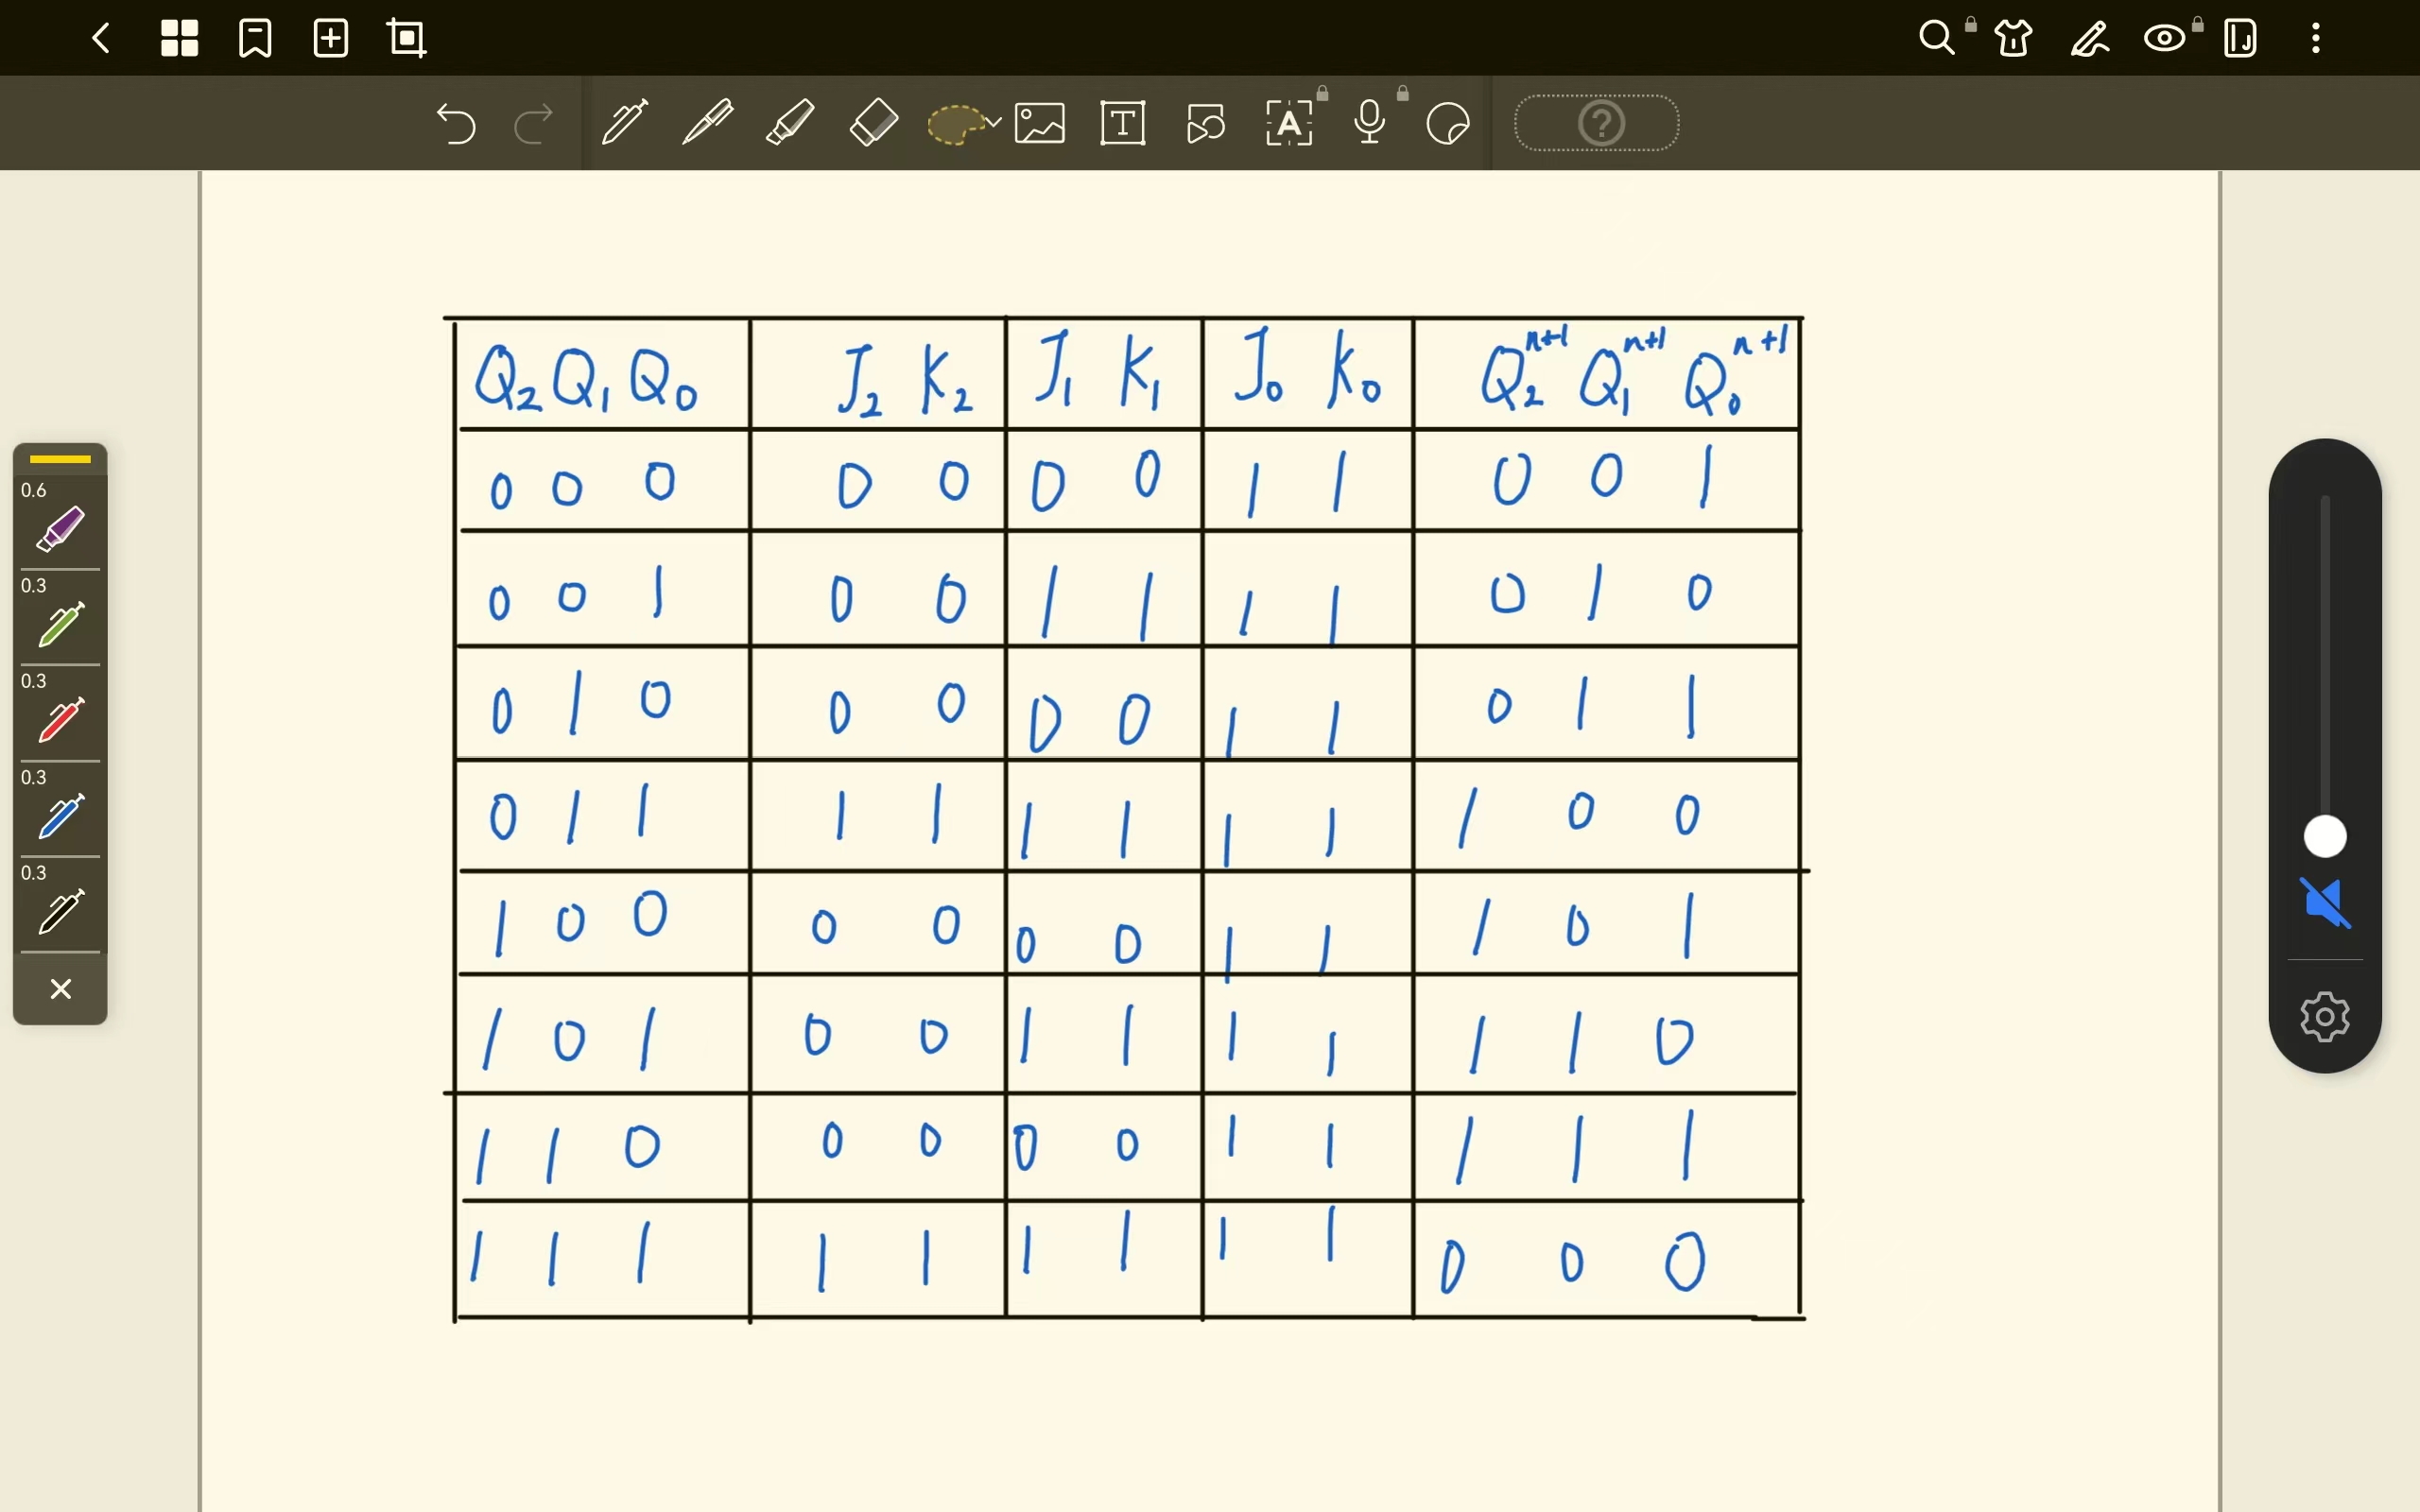 0.6
0.3
0.3
0.3
0.3
Q₂ Q₁ Q₀ J₂ K₂ J₁ K₁ J₀ K₀ Q₂ⁿ⁺¹ Q₁ⁿ⁺¹ Q₀ⁿ⁺¹
0 0 0 0 0 0 0 1 1 0 0 1
0 0 1 0 0 1 1 1 1 0 1 0
0 1 0 0 0 0 0 1 1 0 1 1
0 1 1 1 1 1 1 1 1 1 0 0
1 0 0 0 0 0 0 1 1 1 0 1
1 0 1 0 0 1 1 1 1 1 1 0
1 1 0 0 0 0 0 1 1 1 1 1
1 1 1 1 1 1 1 1 1 0 0 0